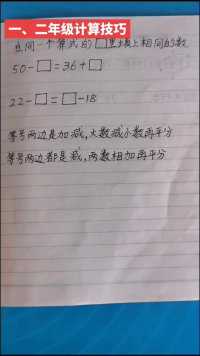 一、二年级计算技巧
在同一个算式的□里填上相同的数
50-□=36+□
22-□=□-18
等号两边是加减,大数减小数再平分
等号两边都是减,两数相加再平分